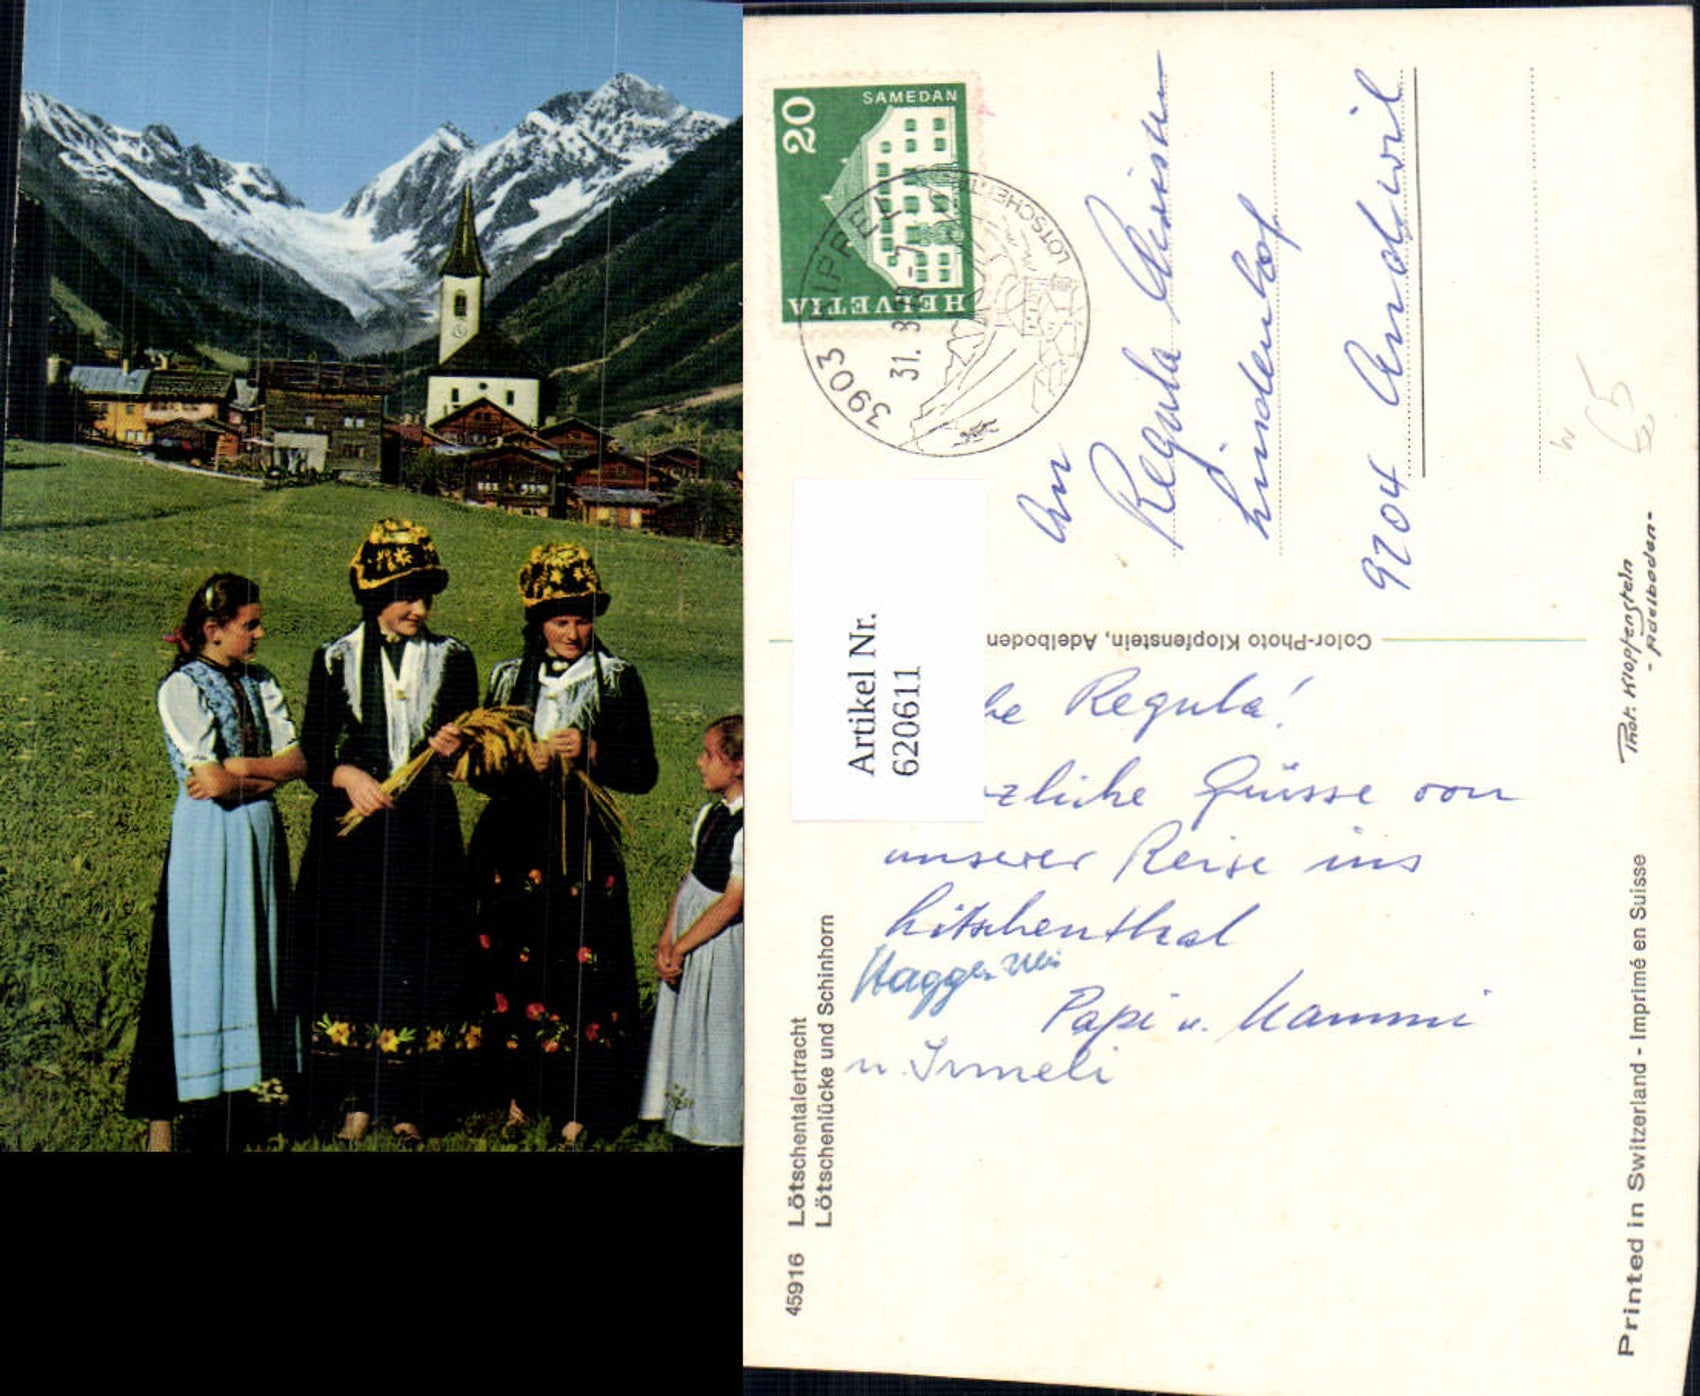 HELVETIA
20
SAMEDAN
3903 KIPPEL
31.
LÖTSCHENTAL
An
Regula
Lindenhof
9204 Andwil
65
Color-Photo Klopfenstein, Adelboden
Artikel Nr.
6206611
be Regula!
zliche Grüsse von
unserer Reise ins
Lötschenthal
Papi u. Mammi
u. Irmeli
45916 Lötschentalertracht
Lötschenlücke und Schinhorn
Phot. Klopfenstein
- Adelboden -
Printed in Switzerland - Imprimé en Suisse